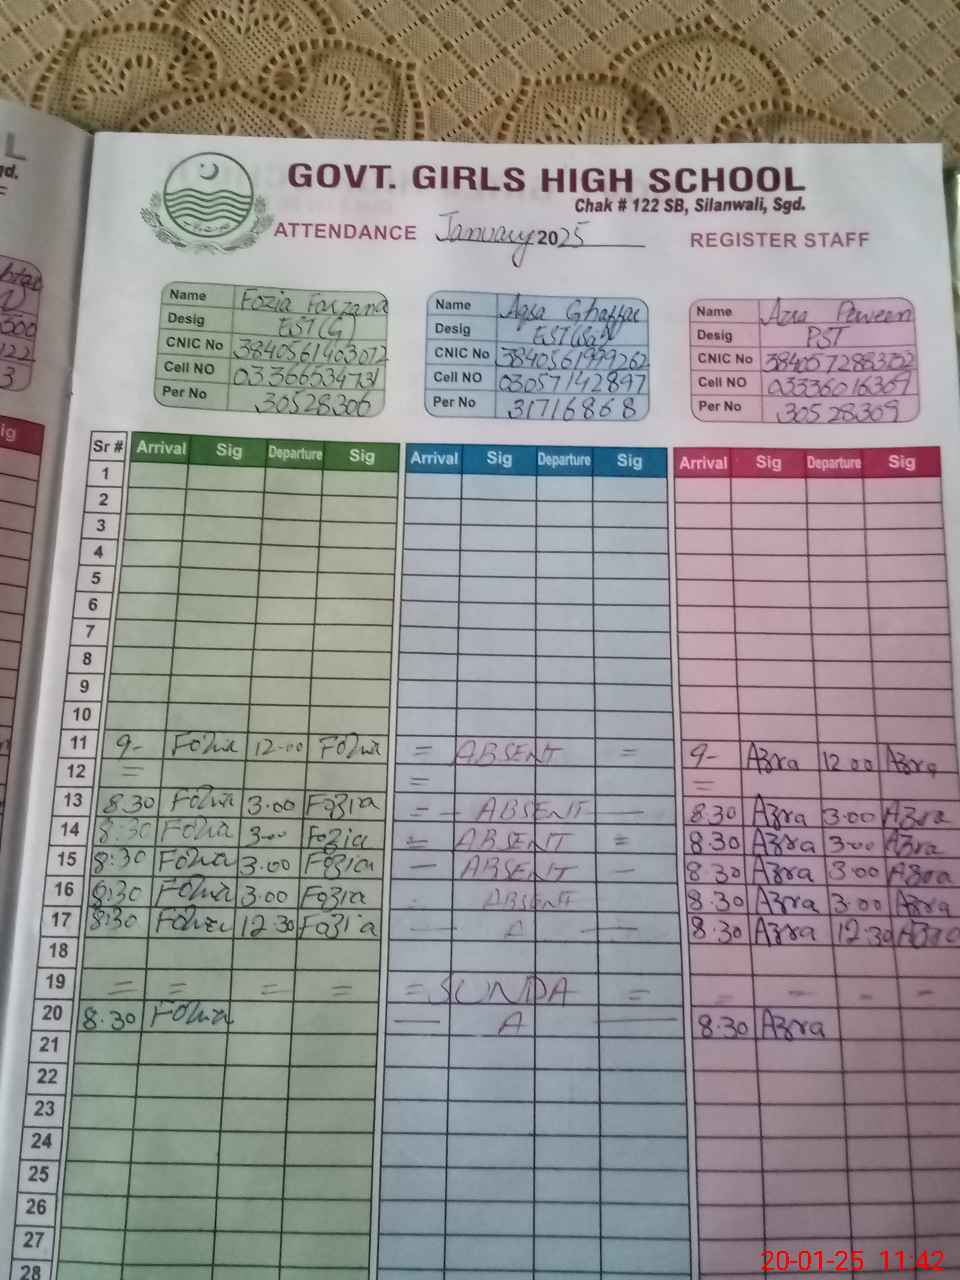 GOVT. GIRLS HIGH SCHOOL
Chak # 122 SB, Silanwali, Sgd.
ATTENDANCE January 2025 REGISTER STAFF
Name Fozia Farzana Name Aqsa Ghaffar Name Azra Perveen
Desig EST(G) Desig Desig PST
CNIC No 3840561403072 CNIC No 3840561999262 CNIC No
Cell NO 03366534731 Cell NO 03057142897 Cell NO
Per No 30528306 Per No 31716868 Per No 30528309
Sr # Arrival Sig Departure Sig Arrival Sig Departure Sig Arrival Sig Departure Sig
1
2
3
4
5
6
7
8
9
10
11 9- Fozia 12.00 Fozia = ABSENT = 9- Azra 12.00 Azra
12 = = =
13 8.30 Fozia 3.00 Fozia = - ABSENT - 8.30 Azra 3.00 Azra
14 8:30 Fozia 3.00 Fozia = ABSENT = 8.30 Azra 3.00 Azra
15 8:30 Fozia 3.00 Fozia - ABSENT - 8.30 Azra 3.00 Azra
16 8:30 Fozia 3.00 Fozia ABSENT 8.30 Azra 3.00 Azra
17 8:30 Fozia 12.30 Fozia - A - 8.30 Azra 12.30 Azra
18
19 = = = = = SUNDA = - - - -
20 8.30 Fozia - A - 8.30 Azra
21
22
23
24
25
26
27
28
20-01-25 11:42